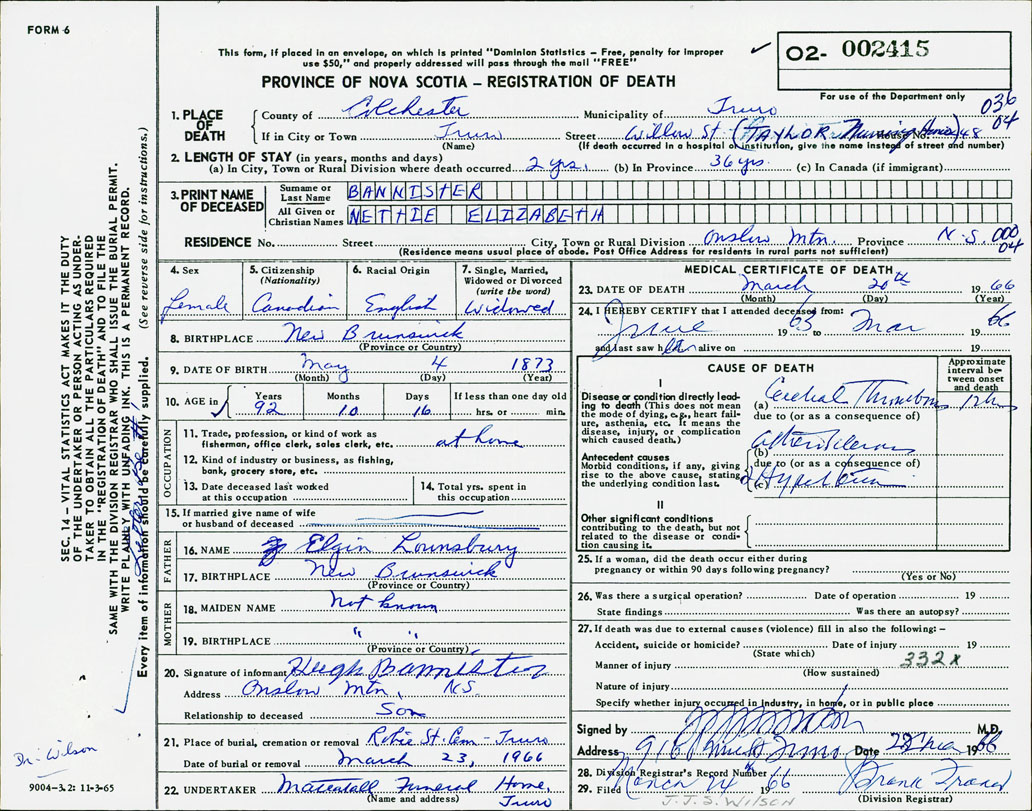 FORM 6
This form, if placed in an envelope, on which is printed "Dominion Statistics – Free, penalty for improper
use $50," and properly addressed will pass through the mail "FREE"
PROVINCE OF NOVA SCOTIA – REGISTRATION OF DEATH
O2- 002415
For use of the Department only
036
04
1. PLACE OF DEATH
County of Colchester Municipality of Truro
If in City or Town Truro Street Willow St (TAYLOR Nursing Home) House No. 48
(Name) (If death occurred in a hospital or institution, give the name instead of street and number)
2. LENGTH OF STAY (in years, months and days)
(a) In City, Town or Rural Division where death occurred 2 yrs. (b) In Province 36 yrs. (c) In Canada (if immigrant)
3. PRINT NAME OF DECEASED
Surname or Last Name BANNISTER
All Given or Christian Names NETTIE ELIZABETH
RESIDENCE No. Street City, Town or Rural Division Onslow Mtn. Province N.S. 000
04
(Residence means usual place of abode. Post Office Address for residents in rural parts not sufficient)
4. Sex
Female
5. Citizenship
(Nationality)
Canadian
6. Racial Origin
English
7. Single, Married,
Widowed or Divorced
(write the word)
Widowed
8. BIRTHPLACE New Brunswick
(Province or Country)
9. DATE OF BIRTH May 4 1873
(Month) (Day) (Year)
10. AGE in
Years 92
Months 10
Days 16
If less than one day old
hrs. or min.
OCCUPATION
11. Trade, profession, or kind of work as
fisherman, office clerk, sales clerk, etc. at home
12. Kind of industry or business, as fishing,
bank, grocery store, etc.
13. Date deceased last worked
at this occupation
14. Total yrs. spent in
this occupation
15. If married give name of wife
or husband of deceased
FATHER
16. NAME Elgin Lounsbury
17. BIRTHPLACE New Brunswick
(Province or Country)
MOTHER
18. MAIDEN NAME Not known
19. BIRTHPLACE " "
(Province or Country)
20. Signature of informant Hugh Bannister
Address Onslow Mtn. N.S.
Relationship to deceased Son
21. Place of burial, cremation or removal Robie St. Cem - Truro
Date of burial or removal March 23, 1966
22. UNDERTAKER Mattatall Funeral Home,
(Name and address) Truro
MEDICAL CERTIFICATE OF DEATH
23. DATE OF DEATH March 20th 1966
(Month) (Day) (Year)
24. I HEREBY CERTIFY that I attended deceased from:
June 1965 to Mar 1966
and last saw her alive on 19
CAUSE OF DEATH
Approximate interval between onset and death
I
Disease or condition directly leading to death (This does not mean the mode of dying, e.g., heart failure, asthenia, etc. It means the disease, injury, or complication which caused death.)
(a) Cerebral Thrombosis
due to (or as a consequence of)
Antecedent causes
Morbid conditions, if any, giving rise to the above cause, stating the underlying condition last.
(b)
due to (or as a consequence of)
(c) Hypertension
II
Other significant conditions
contributing to the death, but not related to the disease or condition causing it.
25. If a woman, did the death occur either during
pregnancy or within 90 days following pregnancy?
(Yes or No)
26. Was there a surgical operation? Date of operation 19
State findings Was there an autopsy?
27. If death was due to external causes (violence) fill in also the following: –
Accident, suicide or homicide? Date of injury 19
(State which)
Manner of injury 332X
(How sustained)
Nature of injury
Specify whether injury occurred in industry, in home, or in public place
Signed by M.D.
Address Truro Date 1966
28. Division Registrar's Record Number
29. Filed March 24 1966 Frank Fraser
(Division Registrar)
J.J.S. WILSON
SEC. 14 – VITAL STATISTICS ACT MAKES IT THE DUTY
OF THE UNDERTAKER OR PERSON ACTING AS UNDER-
TAKER TO OBTAIN ALL THE PARTICULARS REQUIRED
IN THE "REGISTRATION OF DEATH" AND TO FILE THE
SAME WITH THE DIVISION REGISTRAR WHO SHALL ISSUE THE BURIAL PERMIT.
WRITE PLAINLY WITH UNFADING INK. THIS IS A PERMANENT RECORD.
Every item of information should be carefully supplied. (See reverse side for instructions.)
Dr. Wilson
9004–3.2: 11-3-65